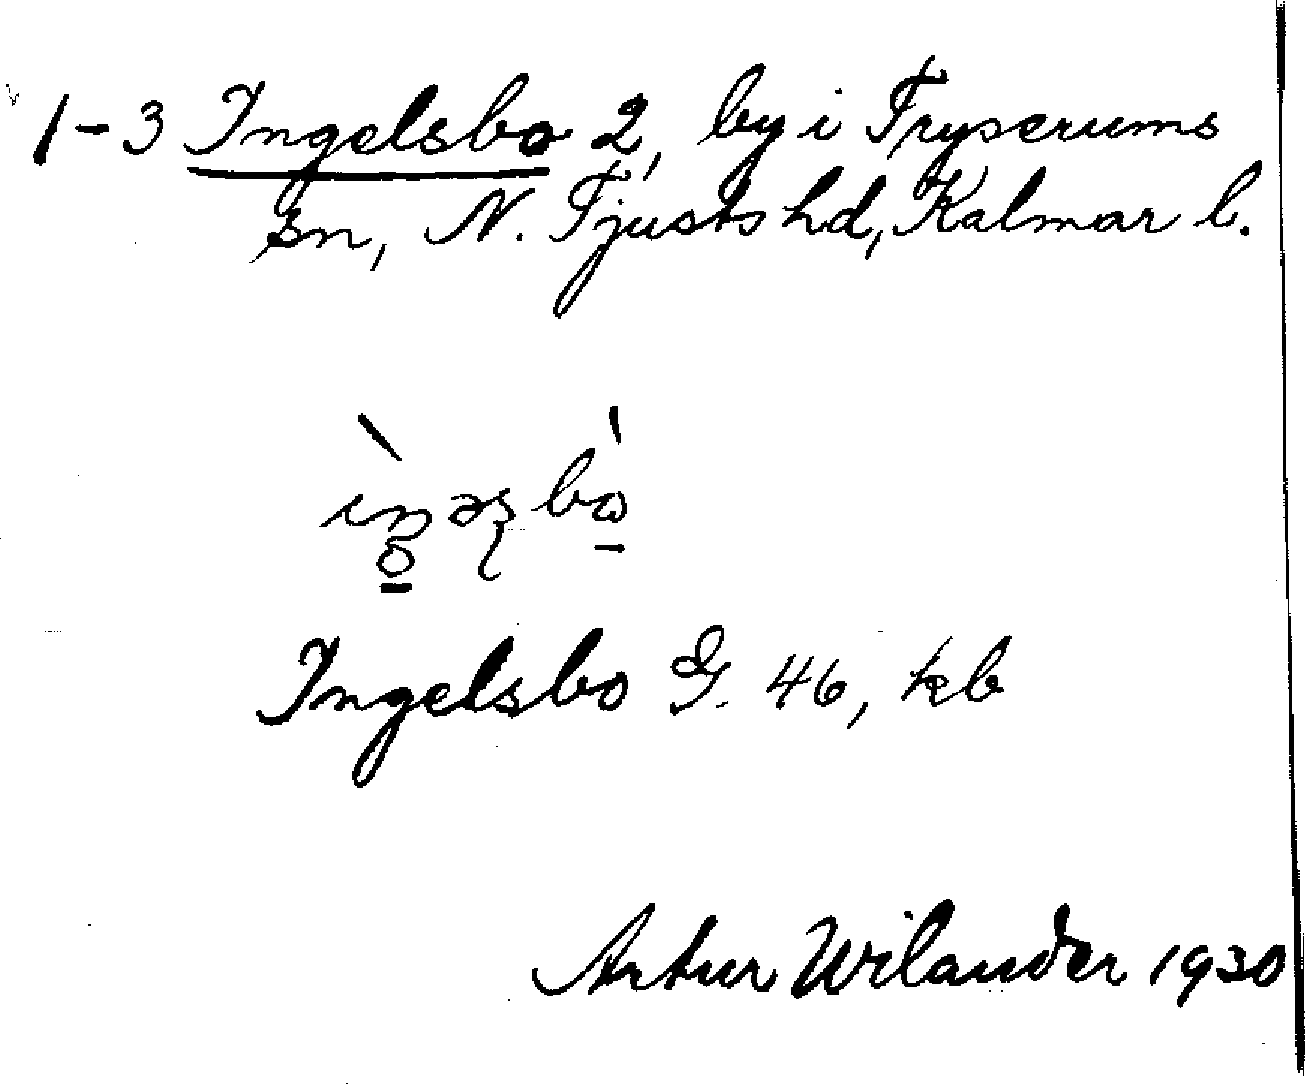 1-3 Ingelsbo 2, by i Tryserums
sn, N. Tjusts hd, Kalmar l.
Ingelsbo G. 46, kb
Artur Wilander 1930